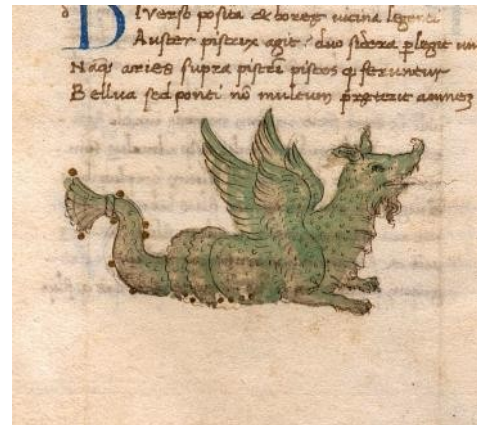 DIVerso posita & boreę uicina legenti
Auster pistrix agit : duo sidera ꝑlegit un
Naqꝫ aries supra pistrī pisces qꝫ feruntur
Bellua sed ponti nō multum pręterit amnez